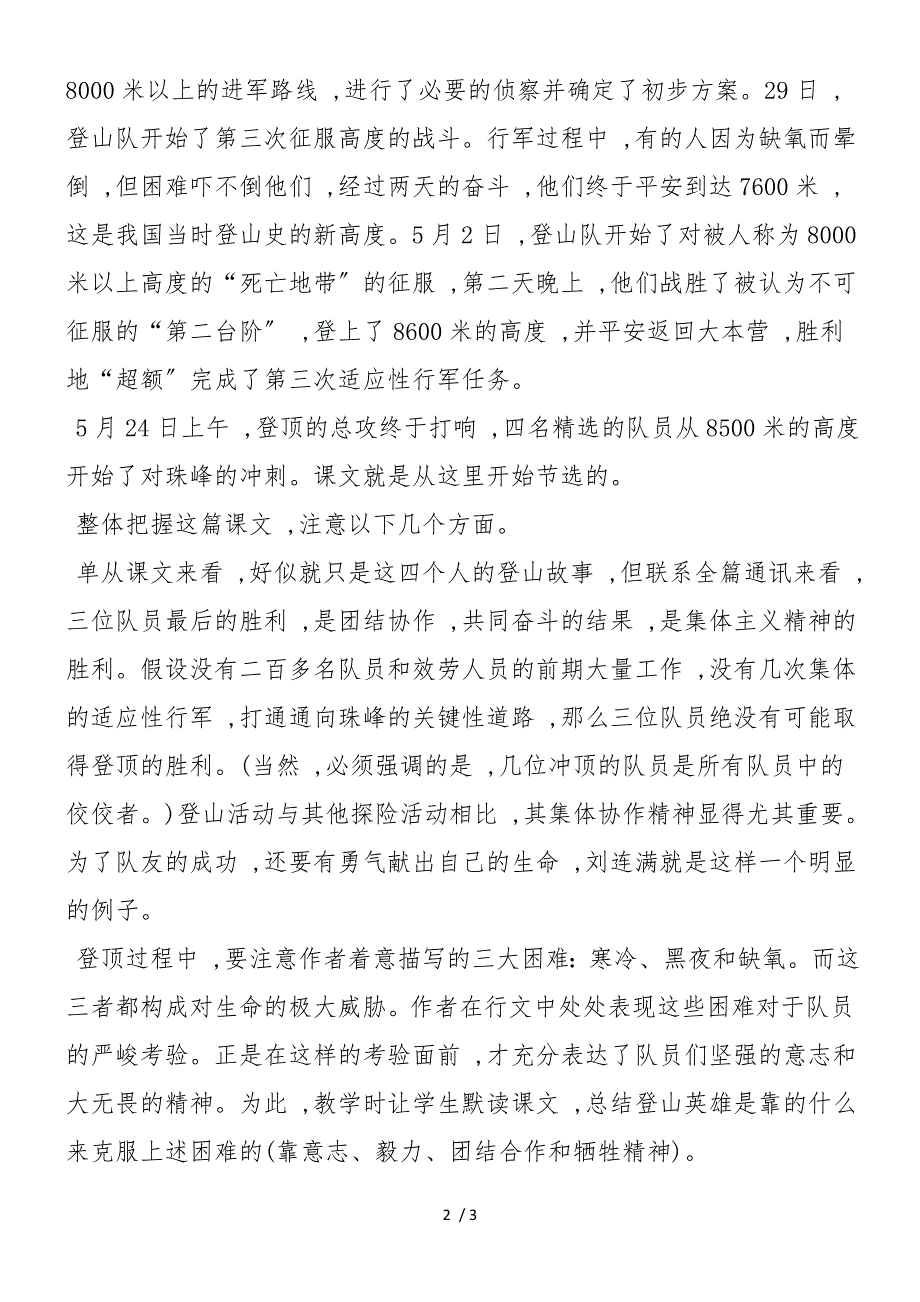 8000 米以上的进军路线 ,进行了必要的侦察并确定了初步方案。29 日 ,
登山队开始了第三次征服高度的战斗。行军过程中 ,有的人因为缺氧而晕
倒 ,但困难吓不倒他们 ,经过两天的奋斗 ,他们终于平安到达 7600 米 ,
这是我国当时登山史的新高度。5 月 2 日 ,登山队开始了对被人称为 8000
米以上高度的“死亡地带〞的征服 ,第二天晚上 ,他们战胜了被认为不可
征服的“第二台阶〞 ,登上了 8600 米的高度 ,并平安返回大本营 ,胜利
地“超额〞完成了第三次适应性行军任务。
5 月 24 日上午 ,登顶的总攻终于打响 ,四名精选的队员从 8500 米的高度
开始了对珠峰的冲刺。课文就是从这里开始节选的。
整体把握这篇课文 ,注意以下几个方面。
单从课文来看 ,好似就只是这四个人的登山故事 ,但联系全篇通讯来看 ,
三位队员最后的胜利 ,是团结协作 ,共同奋斗的结果 ,是集体主义精神的
胜利。假设没有二百多名队员和效劳人员的前期大量工作 ,没有几次集体
的适应性行军 ,打通通向珠峰的关键性道路 ,那么三位队员绝没有可能取
得登顶的胜利。(当然 ,必须强调的是 ,几位冲顶的队员是所有队员中的
佼佼者。)登山活动与其他探险活动相比 ,其集体协作精神显得尤其重要。
为了队友的成功 ,还要有勇气献出自己的生命 ,刘连满就是这样一个明显
的例子。
登顶过程中 ,要注意作者着意描写的三大困难：寒冷、黑夜和缺氧。而这
三者都构成对生命的极大威胁。作者在行文中处处表现这些困难对于队员
的严峻考验。正是在这样的考验面前 ,才充分表达了队员们坚强的意志和
大无畏的精神。为此 ,教学时让学生默读课文 ,总结登山英雄是靠的什么
来克服上述困难的(靠意志、毅力、团结合作和牺牲精神)。
2 / 3